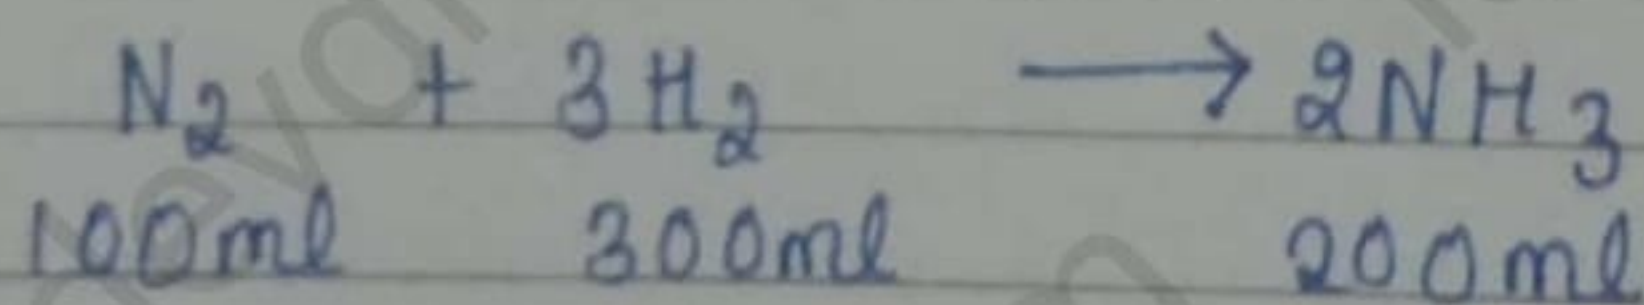 N₂ + 3H₂ ⟶ 2NH₃
100ml 300ml 200ml